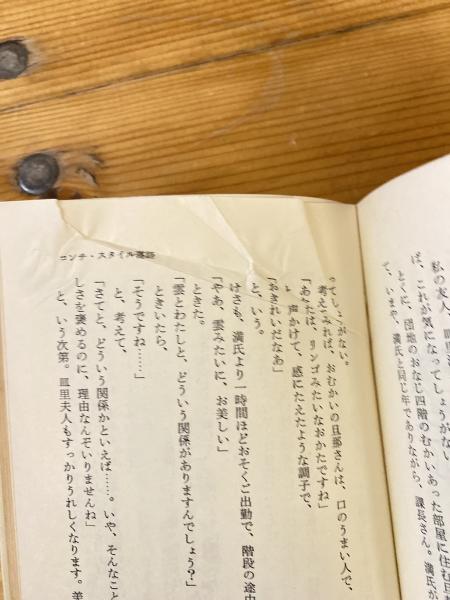 私の友人、
ば、これが気になってしょうがない。
とくに、団地のおなじ四階のむかいあった部屋に住む旦
て、いまや、満氏と同じ年でありながら、課長さん。満氏が
コント・スタイル落語
ってしょうがない。
考えてみれば、おむかいの旦那さんは、口のうまい人で、
「あなたは、リンゴみたいなおかたですね」
と、声かけて、感にたえたような調子で、
「おきれいだなあ」
と、いう。
けさも、満氏より一時間ほどおそくご出勤で、階段の途中
「やあ、雲みたいに、お美しい」
ときた。
「雲とわたしと、どういう関係がありますんでしょう？」
ときいたら、
「そうですね……」
と、考えて、
「さてと、どういう関係かといえば……。いや、そんなこと
しさを褒めるのに、理由なんぞいりませんね」
と、いう次第。皿里夫人もすっかりうれしくなります。美